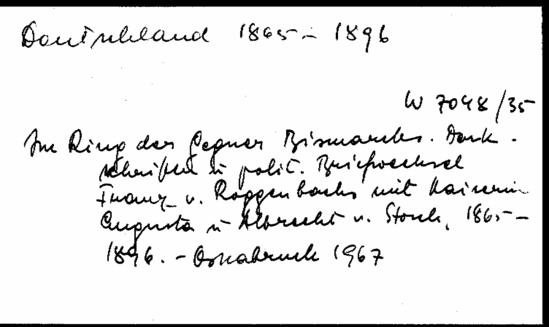 Deutschland 1865 – 1896
W 7048/35
Im Ring der Gegner Bismarcks. Denk-
schriften u polit. Briefwechsel
Franz v. Roggenbachs mit Kaiserin
Augusta u Albrecht v. Stosch, 1865 –
1896. – Osnabrück 1967